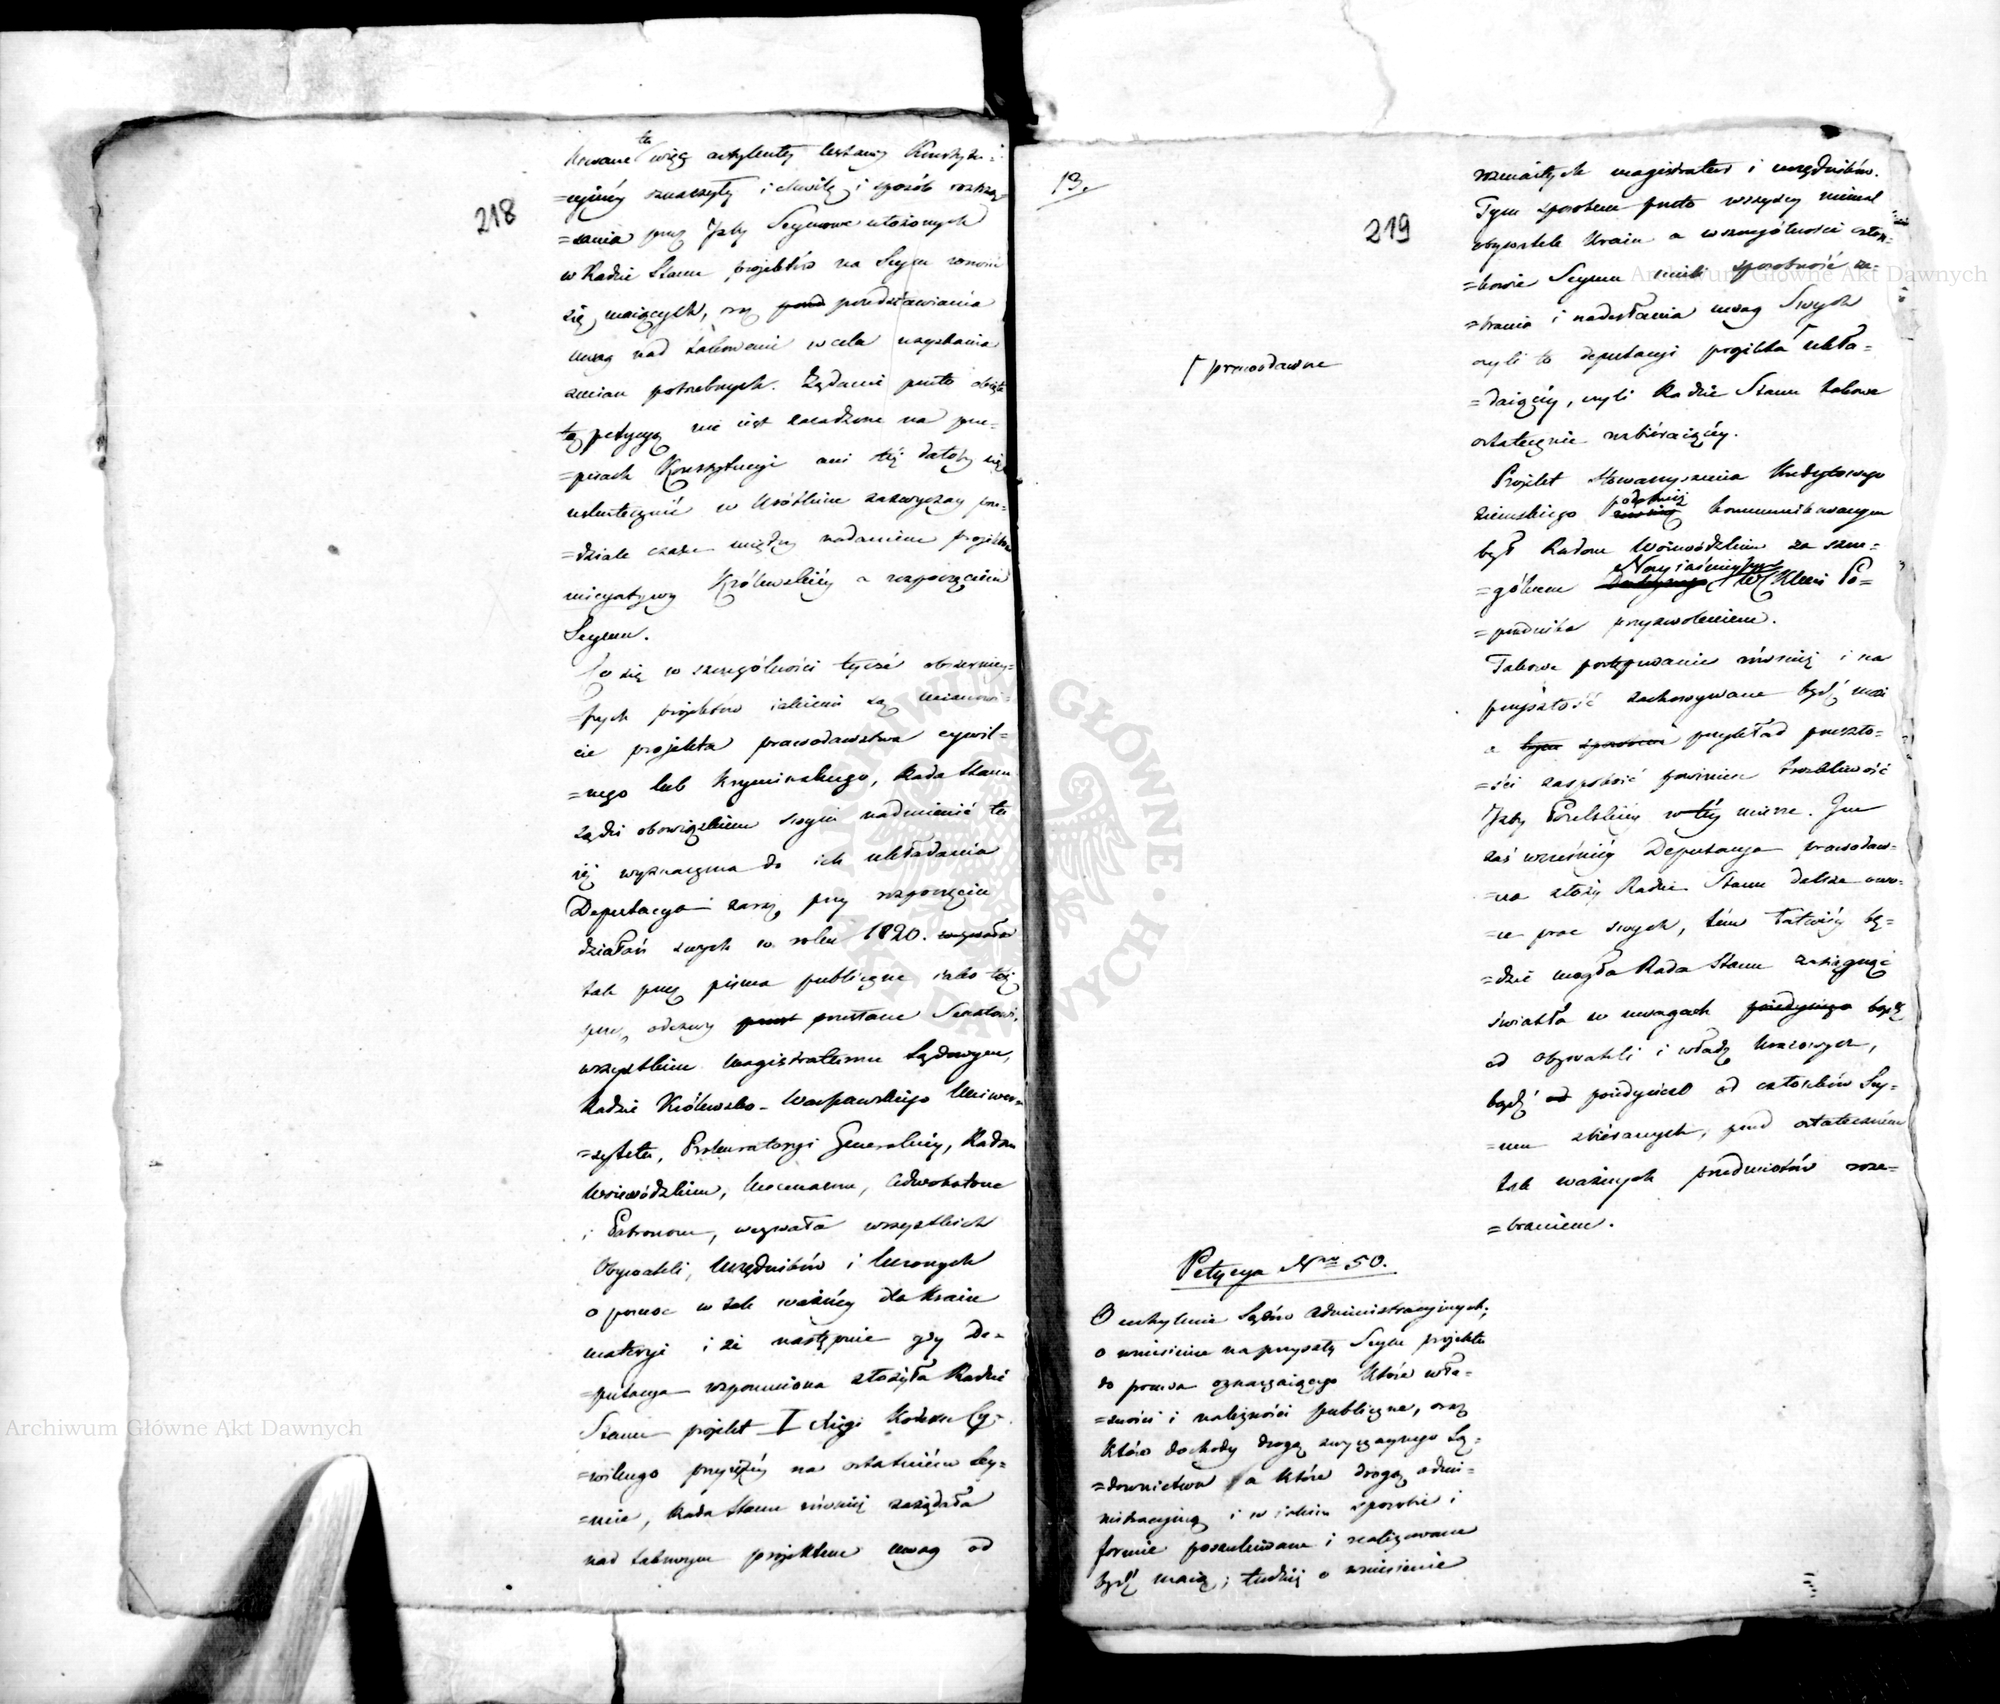 218
te
kowane więc artykuły ustawy Konstytu=
=cyjnéy oznaczyły i chwilę i sposób roztrzą=
=sania przez Izby Seymowe ułożonych
w Radzie Stanu projektów na Seym wnosić
się maiących, oraz przed przedstawiania
uwag nad takowemi w celu uzyskania
zmian potrzebnych. Żądanie przeto obięte
tą petycyą nie iest zasadzone na prze=
=pisach Konstytucyi ani też dałoby się
uskutecznić w krótkim zazwyczay prze=
=dziale czasu między nadaniem projektom
inicyatywy Królewskiéy a rozpoczęciem
Seymu.
Co się w szczególności tycze obszerniey=
=szych projektów iakiemi są mianowi=
cie projekta prawodawstwa cywil=
=nego lub kryminalnego, Rada Stanu
sądzi obowiązkiem swym nadmienić tu
iż wyznaczona do ich układania
Deputacya zaraz przy rozpoczęciu
działań swych w roku 1820. wezwała
tak przez pisma publiczne iako też
przez odezwy przest przesłane Senatowi,
wszystkim magistraturom Sądowym,
Radzie Królewsko-Warszawskiego Uniwer=
=sytetu, Prokuratoryi Generalnéy, Radom
Woiewódzkim, Mecenasom, Adwokatom
i Patronom, wezwała wszystkich
Obywateli, Urzędników i Uczonych
o pomoc w tak ważnéy dla Kraiu
materyi i że następnie gdy De=
=putacya wspomniona złożyła Radzie
Stanu projekt I Xięgi Kodexu Cy=
=wilnego przyiętéy na ostatnim Sey=
=mie, Rada Stanu również zażądała
nad takowym projektem uwag od
13.
219
rozmaitych magistratur i urzędników.
Tym sposobem przeto wszyscy niemal
obywatele Kraiu a w szczególności człon=
=kowie Seymu mieli sposobność ze=
=brania i nadesłania uwag Swych
czyli to deputacyi projekta ukła=
⌈ prawodawcze
=daiącéy, czyli Radzie Stanu takowe
ostatecznie rozbieraiącéy.
Projekt Stowarzyszenia Kredytowego
podobnież
Ziemskiego również kommunikowanym
był Radom Woiewódzkim za szcze=
Nayiaśnieyszego
=gólnem W. K. Mci Po=
=przednika przyzwoleniem.
Takowe postępowanie również i na
przyszłość zachowywane bydź może
a tym sposobem przykład przeszło=
=ści zaspokoić powinien troskliwość
Izby Poselskiéy w téy mierze. Im
zaś wcześniéy Deputacya prawodaw=
=cza złoży Radzie Stanu dalsze owo=
=ce prac swych, tém łatwiéy bę=
=dzie mogła Rada Stanu zasięgnąć
światła w uwagach poiedynczo bądź
od Obywateli i władz Kraiowych,
bądź od poiedynczo od członków Sey=
=mu zbieranych, przed ostateczném
tak ważnych przedmiotów roze=
=braniem.
Petycya Nro 50.
O uchylenie Sądów Administracyjnych;
o wniesienie na przyszły Seym projektu
do prawa oznaczaiącego które wła=
=sności i należności publiczne, oraz
które dochody drogą zwyczaynego Są=
=downictwa a które drogą admi=
nistracyjną i w iakim sposobie i
formie poszukiwane i realizowane
bydź maią; tudzież o wniesienie